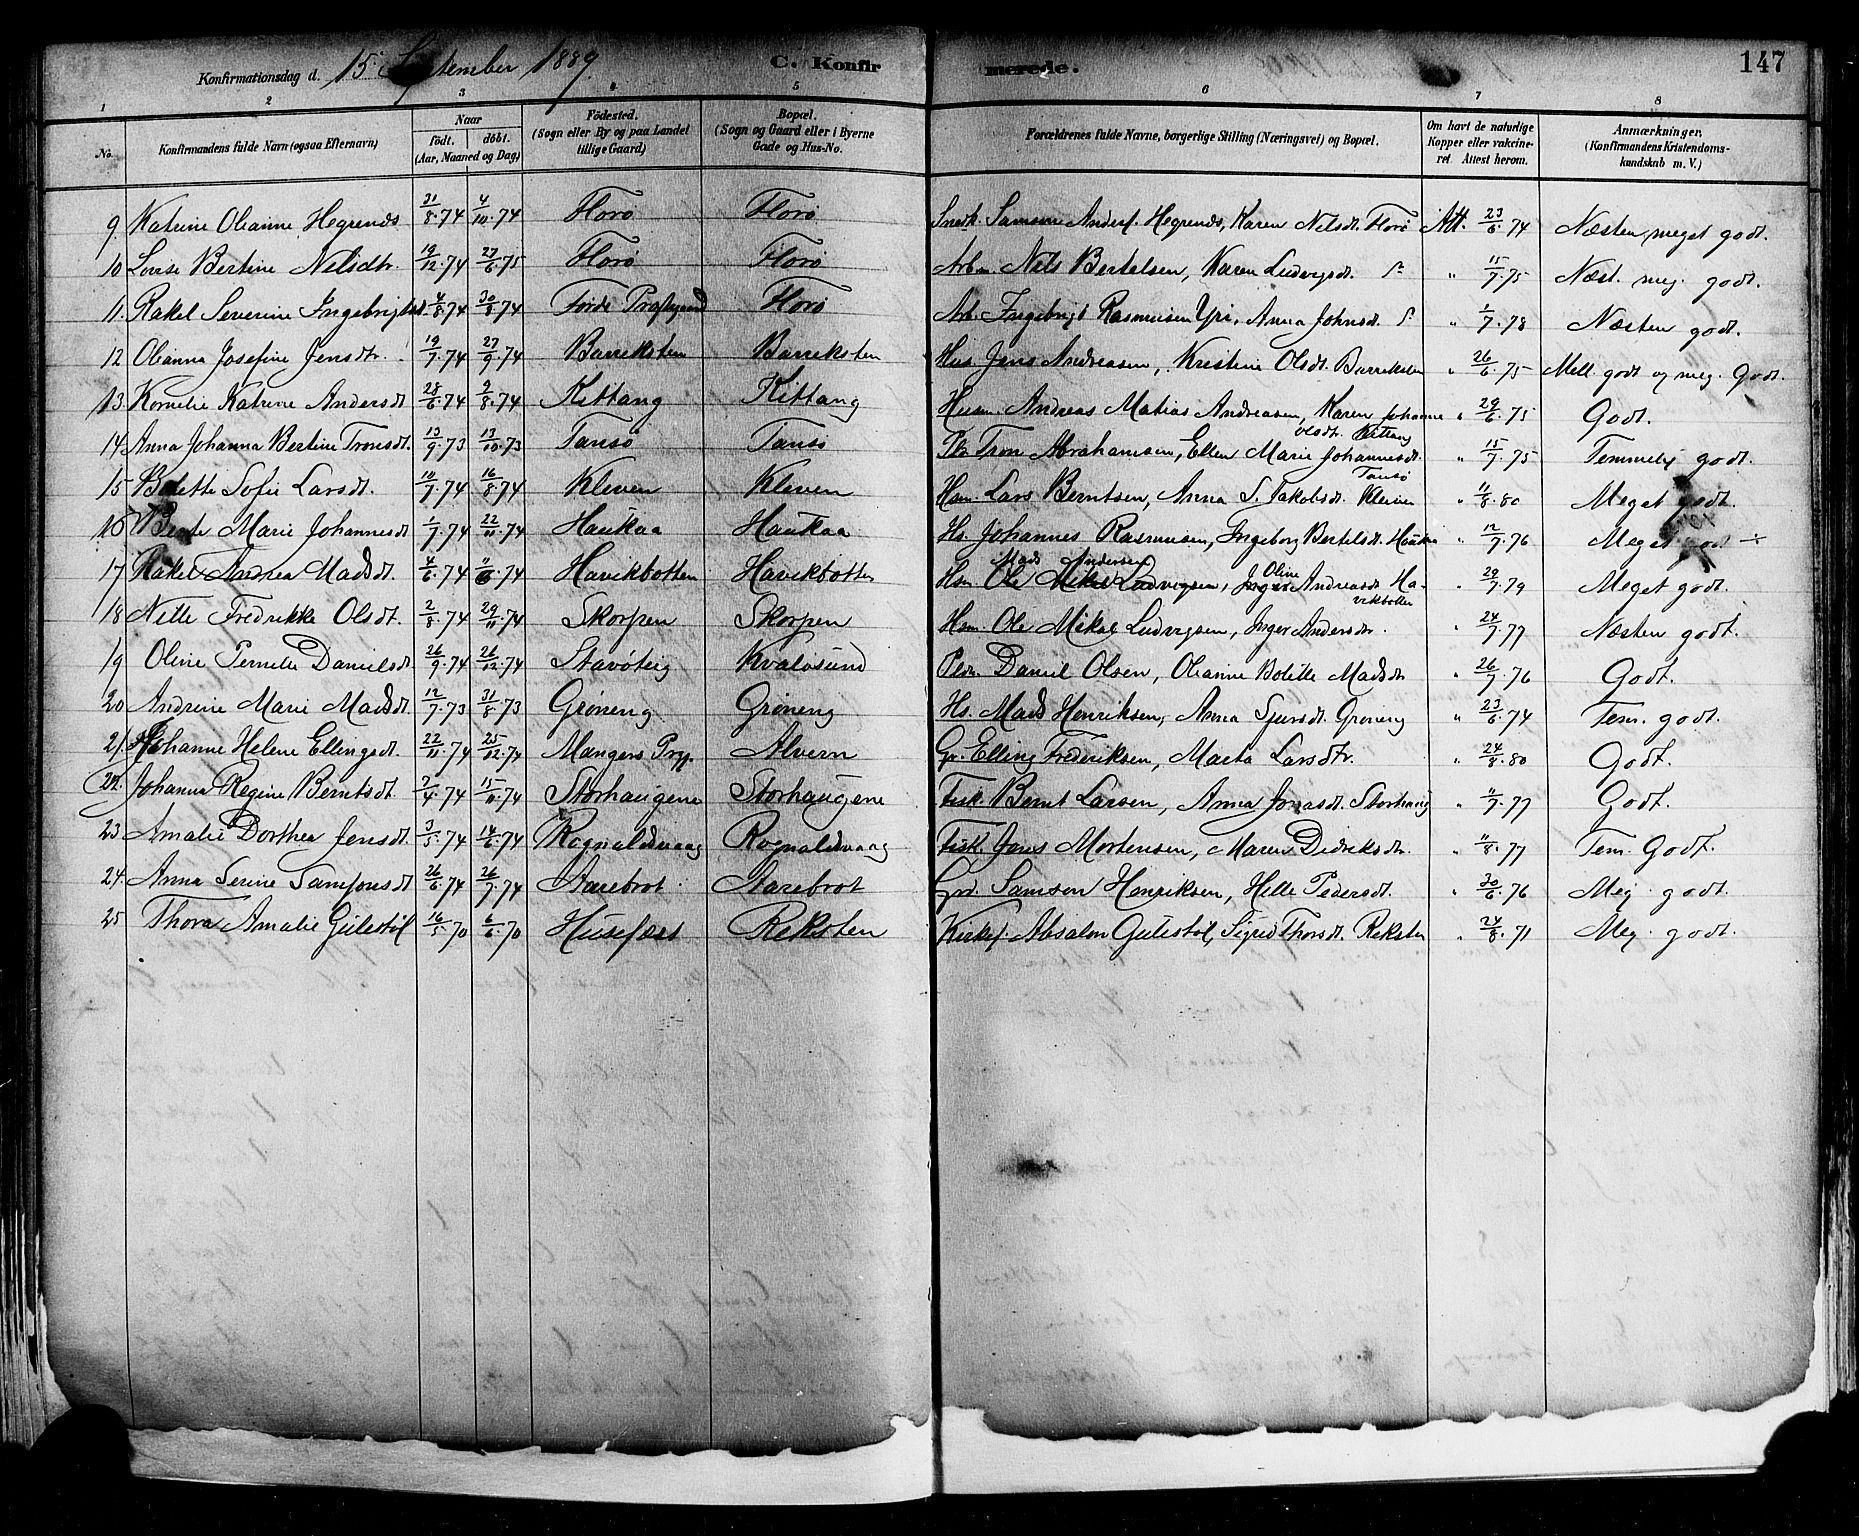 147
Konfirmationsdag d. 15 September 1889 C. Konfir merede.
1 2 3 4 5 6 7 8
No. Konfirmandens fulde Navn (ogsaa Efternavn) Naar födt. döbt. (Aar, Maaned og Dag) Födested. (Sogn eller By og paa Landet tillige Gaard) Bopæl. (Sogn og Gaard eller i Byerne Gade og Hus-No. Forældrenes fulde Navne, borgerlige Stilling (Næringsvei) og Bopæl. Om havt de naturlige Kopper eller vaccineret. Attest herom. Anmærkninger. (Konfirmandens Kristendomskundskab m. V.)
9. Katrine Oleanne Hegrenes 31/8.74 4/10.74 Florø Florø Snedk. Samson Anders. Hegrenes, Karen Nilsdt. Florø Att. 23/6.74 Næsten meget godt.
10 Lovise Bertine Nilsdtr. 19/12.74 27/6.75 Florø Florø Arbm. Nils Bertelsen, Karen Ludvigsdt. " 15/7.75 Næst. meg. godt.
11. Rakel Severine Ingebrigtsd. 4/8.74 30/8.74 Førde Præstegjæld Florø Arb. Ingebrigt Rasmussen Yri, Anna Johnsdt. " 1/7.78 Næsten godt.
12 Olianna Josefine Jensdtr. 19/7.74 27/9.74 Barreksten Barreksten Hus. Jens Andreasen, Kristine Olsdt. Barreksten " 26/6.75 Mell. godt og meg. Godt.
13. Kornelie Katrine Andersdt 28/6.74 9/8.74 Kittang Kittang Husm. Andreas Matias Andreasen, Karen Johanne Olsdt. Kittang " 29/6.75 Godt.
14. Anna Johanna Bertine Tronsdt. 13/9.73 13/10.73 Tansø Tansø Pl. Tron Abrahamsen, Ellen Marie Johannesdt. Tansø " 15/7.75 Temmelig godt.
15 Bolette Sofie Larsdt. 10/7.74 16/8.74 Kleven Kleven Hsm. Lars Berntsen, Anna S. Jakobsdt. Kleven " 11/8.80 Meget godt.
16 Berte Marie Johannesdt 1/7.74 22/11.74 Haukaa Haukaa Hs. Johannes Rasmussen, Ingeborg Bertelsdt. Haukaa " 12/7.76 Meget godt
17. Rakel Andrea Madsdt. 4/6.74 11/6.74 Havikbotten Havikbotten Hsm Mads Andersen Ole Mikal Ludvigsen, Inger Oline Andreasdt Havikbotten " 29/7.79 Meget godt.
18 Nille Fredrikke Olsdt. 2/8.74 29/11.74 Skorpen Skorpen Hsm. Ole Mikal Ludvigsen, Inger Andersdt. " 24/7.77 Næsten godt.
19 Oline Pernille Danielsdt 26/9.74 26/12.74 Stavøteig Kvaløsund Pldm. Daniel Olsen, Oleanne Bolette Madsdt " 26/7.76 Godt.
20 Andrine Marie Madsdt. 12/7.73 31/8.73 Grøneng Grøneng Hs. Mads Henriksen, Anna Sjursdt. Grøneng " 23/6.74 Tem. godt.
21. Johanne Helene Ellingsdt 22/11.74 25/12.74 Mangers Prgj. Alvern Gr. Elling Frederiksen, Marta Larsdtr. " 24/8.80 Godt.
22. Johanna Regine Berntsdt. 2/4.74 15/11.74 Storhaugene Storhaugene Fisk. Bernt Larsen, Anna Jonasdt. Storhaug " 11/7.77 Godt.
23 Amalie Dorthea Jensdt. 3/5.74 14/6.74 Rognaldsvaag Rognaldsvaag Fisk. Jens Mortensen, Maren Didriksdtr. " 11/8.77 Tem. Godt.
24. Anna Serine Samsonsdt 26/6.74 26/7.74 Aarebrot Aarebrot Grd. Samson Henriksen, Helle Pedersdt. " 30/6.76 Meg. godt.
25 Thora Amalie Gulestøl 16/5.70 6/6.70 Husefæst Reksten Kirkes. Absalon Gulestøl, Sigrid Thorsdt. Reksten " 24/8.71 Meg. godt.